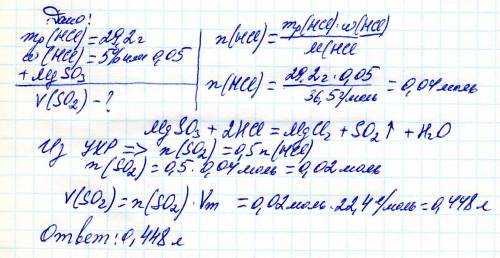 Дано:
mр(HCl)=29,2г
ω(HCl)=5% или 0,05
+MgSO3
V(SO2)-?
n(HCl)=mр(HCl)·ω(HCl)/M(HCl
n(HCl)=29,2г·0,05/36,5г/моль=0,04моль
MgSO3+2HCl=MgCl2+SO2↑+H2O
Из УХР=> n(SO2)=0,5n(HCl)
n(SO2)=0,5·0,04моль=0,02моль
V(SO2)=n(SO2)·Vm=0,02моль·22,4л/моль=0,448л
Ответ:0,448л